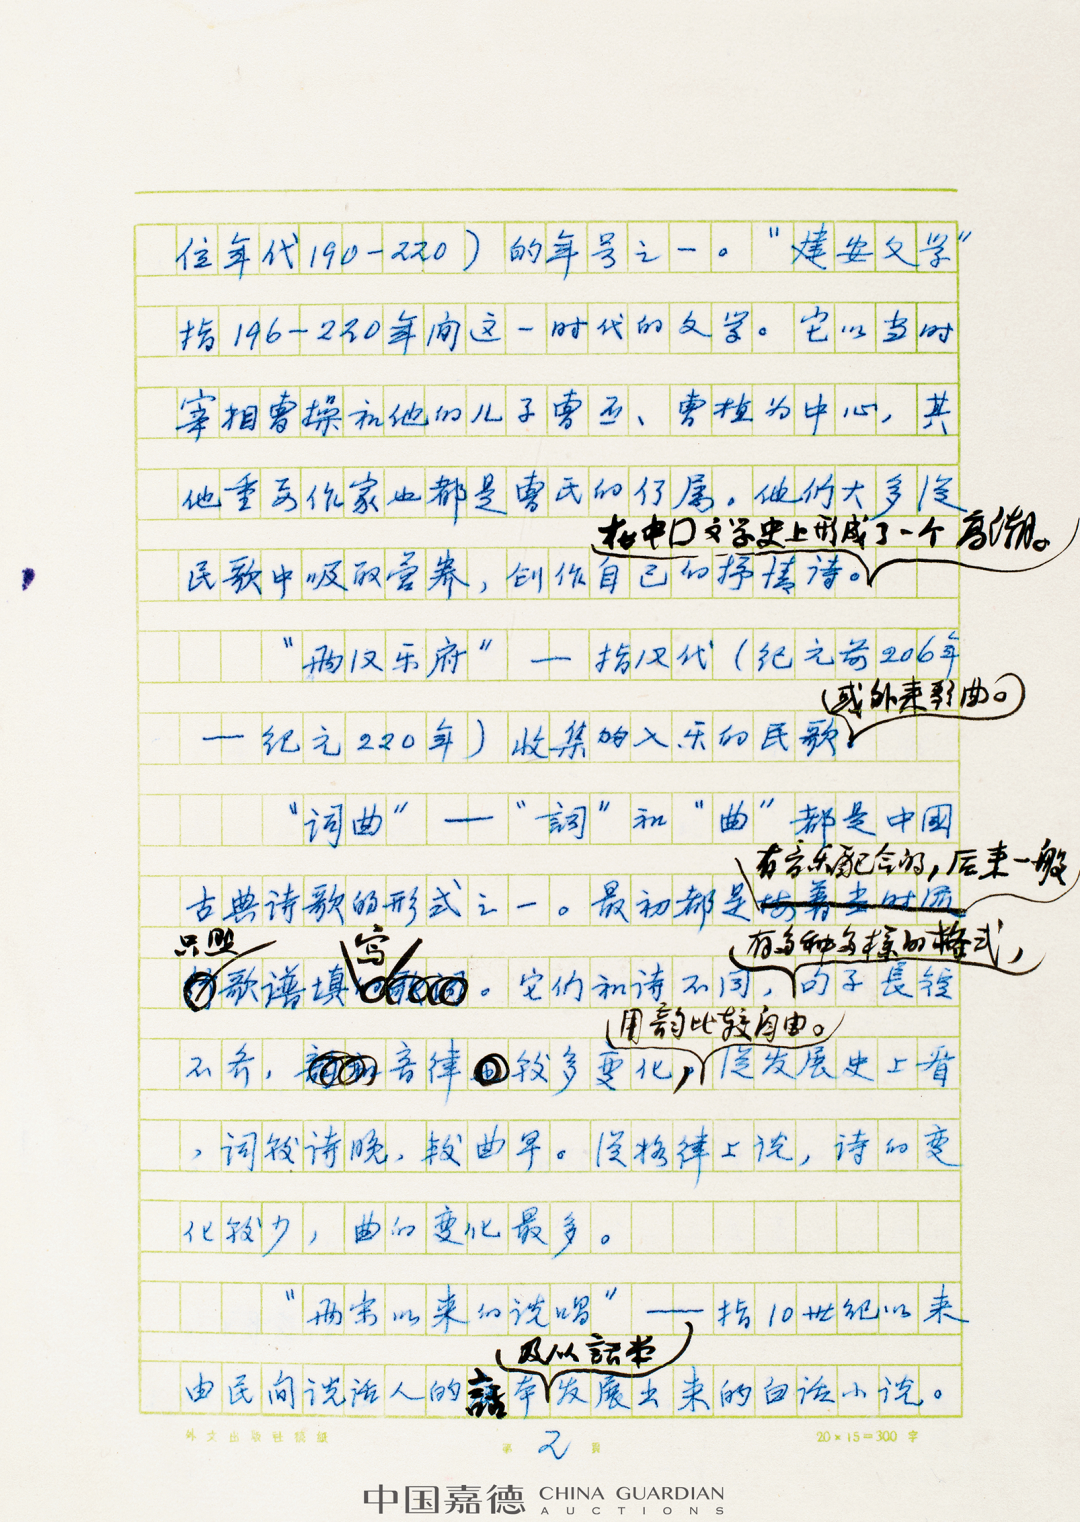 位年代190—220）的年号之一。“建安文学”
指196—220年间这一时代的文学。它以当时
宰相曹操和他的儿子曹丕、曹植为中心，其
他重要作家也都是曹氏的仔属。他们大多从
在中口文学史上形成了一个高潮。
民歌中吸取营养，创作自己的抒情诗。
“两汉乐府”—指汉代（纪元前206年
或外来歌曲。
—纪元220年）收集的入乐的民歌
“词曲”—“詞”和“曲”都是中國
有音乐配合的，后来一般
古典诗歌的形式之一。最初都是按着当时流
只照 写 有多种多样的格式，
歌谱填 。它们和诗不同，句子長短
用韵比较自由。
不齐，音律较多变化，从发展史上看
，词较诗晚，较曲早。从格律上说，诗的变
化较少，曲的变化最多。
“两宋以来的说唱”—指10世纪以来
及以話本
由民间说话人的話本发展出来的白话小说。
外文出版社稿纸 第2頁 20×15=300字
中国嘉德 CHINA GUARDIAN
AUCTIONS